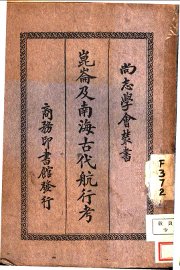 尚志學會叢書
崑崙及南海古代航行考
商務印書館發行
F372